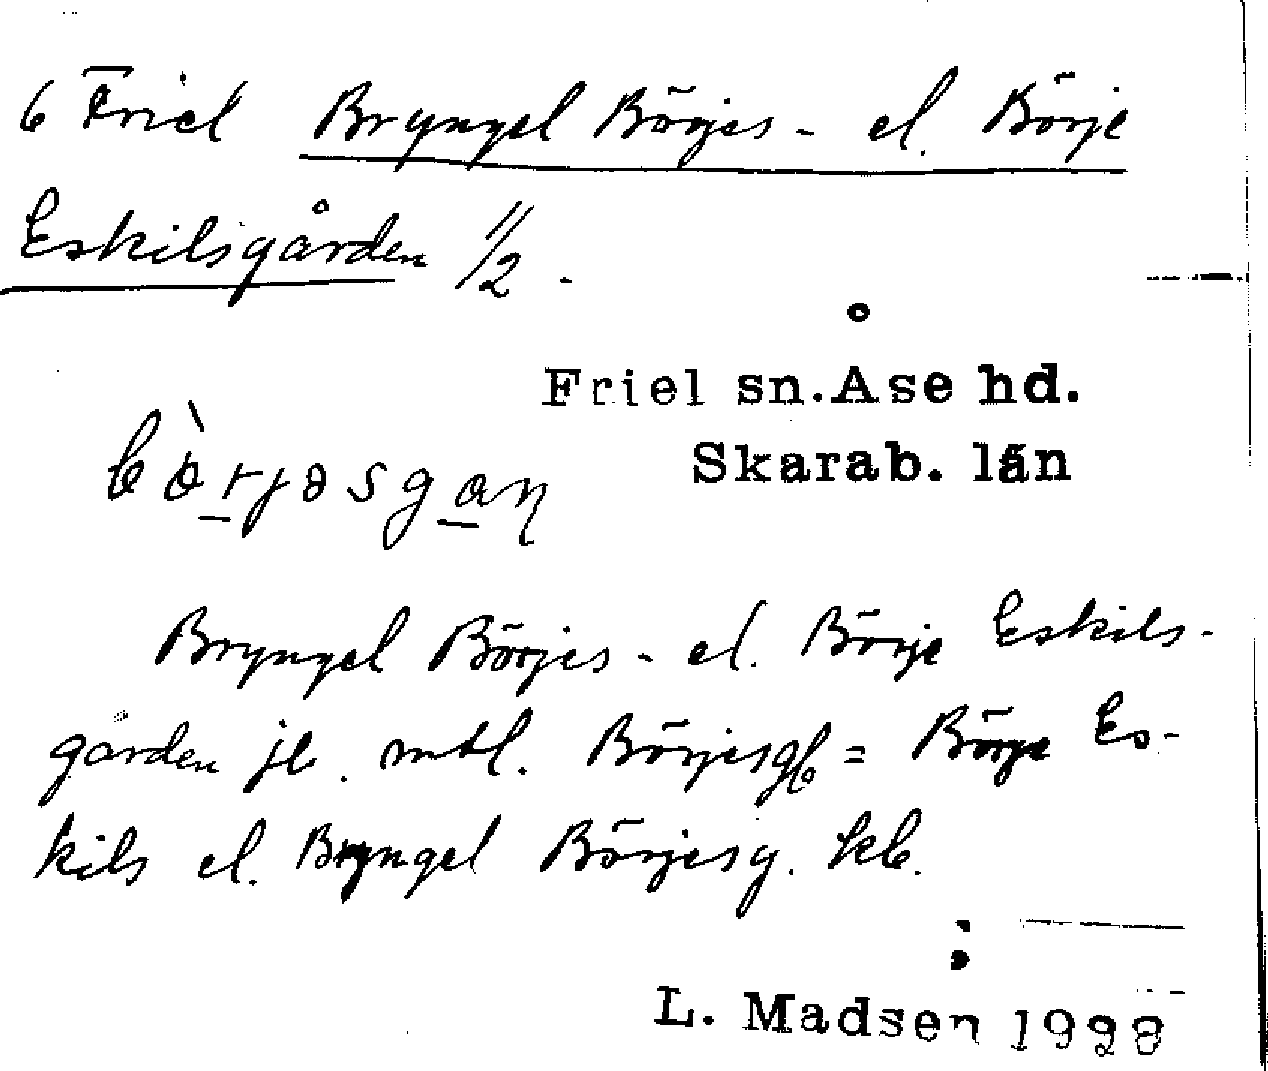 6 Friel Bryngel Börjes- el. Börje
Eskilsgården 1/2.
Friel sn. Åse hd.
Skarab. län
bòrjəsgaɳ
Bryngel Börjes- el. Börje Eskils-
gården jb. mtl. Börjesgb = Börje Es-
kils el. Bryngel Börjesg. kb.
L. Madsen 1928